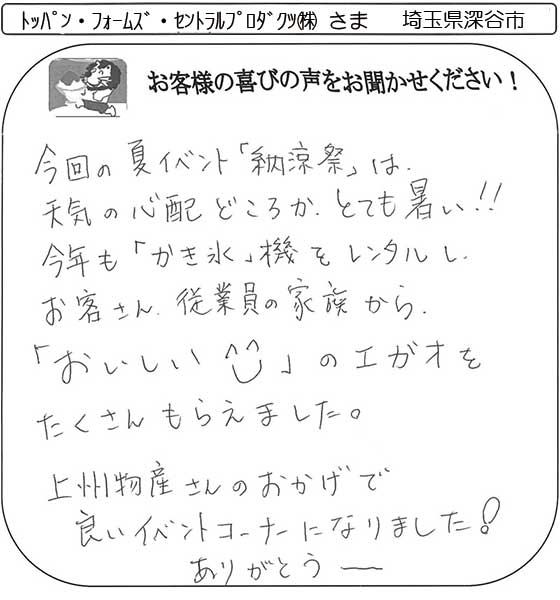 ﾄｯﾊﾟﾝ・ﾌｫｰﾑｽﾞ・ｾﾝﾄﾗﾙﾌﾟﾛﾀﾞｸﾂ㈱ さま　埼玉県深谷市
お客様の喜びの声をお聞かせください！
今回の夏イベント「納涼祭」は、
天気の心配どころか、とても暑い!!
今年も「かき氷」機をレンタルし、
お客さん、従業員の家族から、
「おいしい^^」のエガオを
たくさんもらえました。
上州物産さんのおかげで
良いイベントコーナーになりました!
ありがとうー